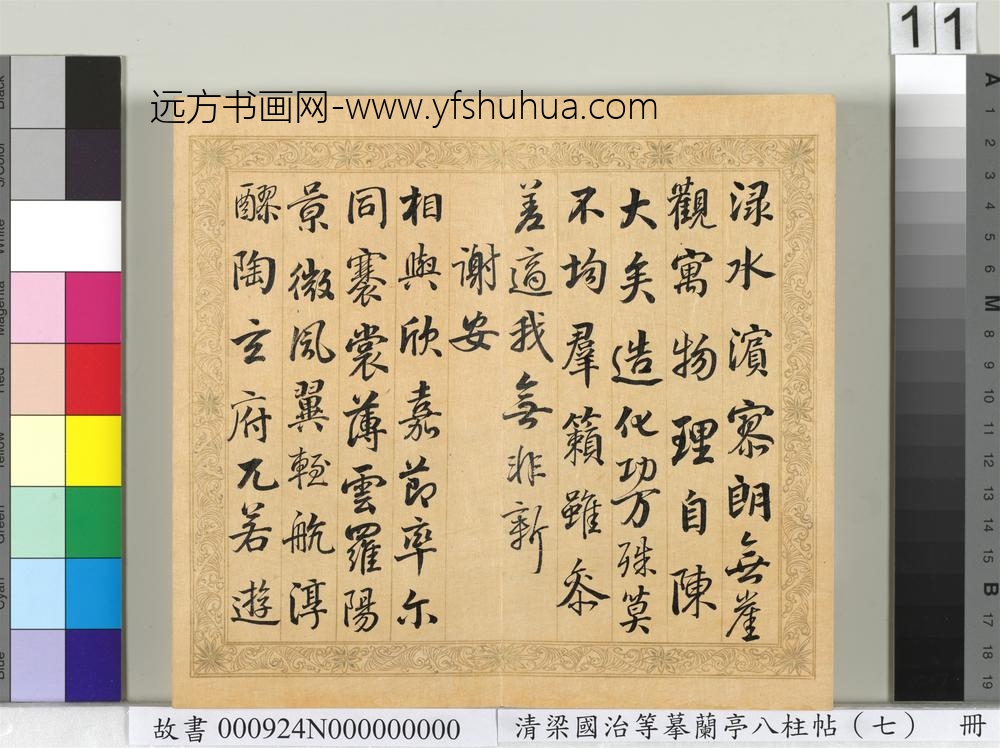 11
远方书画网-www.yfshuhua.com
渌水濱寥朗無崖
觀寓物理自陳
大矣造化功万殊莫
不均羣籟雖叅
差適我無非新
謝安
相與欣嘉節率尔
同褰裳薄雲羅陽
景微風翼輕航淳
醪陶玄府兀若遊
故書 000924N000000000
清梁國治等摹蘭亭八柱帖（七） 冊
Black
3/Color
White
Magenta
Red
Yellow
Green
Cyan
Blue
A
1
2
3
4
5
6
M
8
9
10
11
12
13
14
15
B
17
18
19